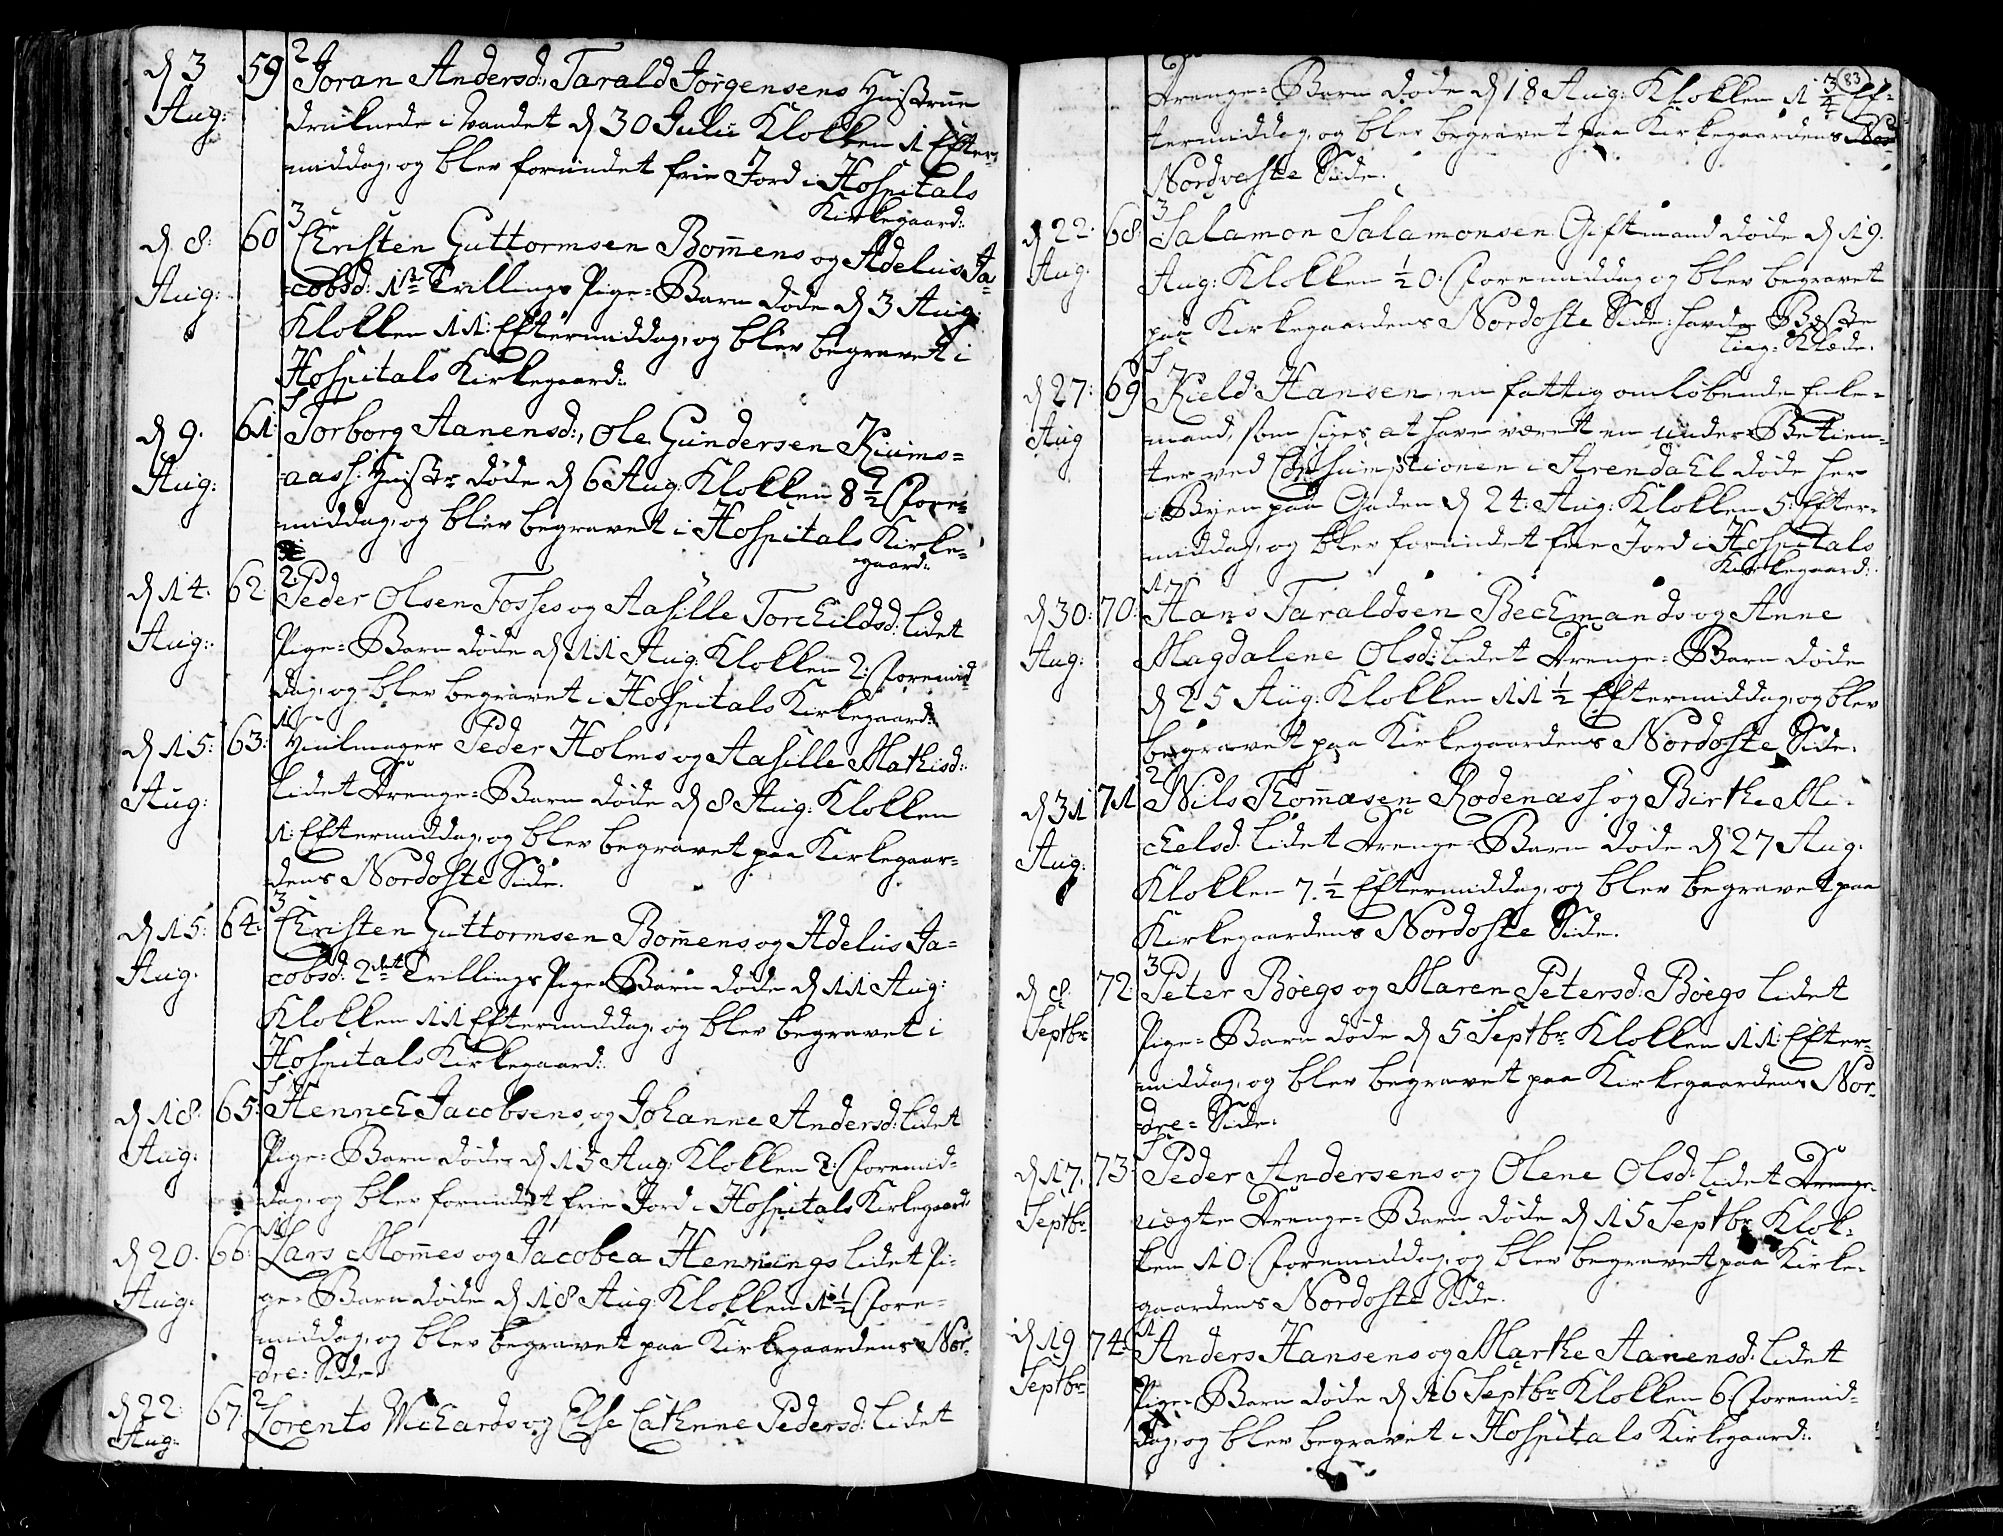 d 3 59 2 Joran Andersd:, Tarald Jörgensens Hustrue
Aug: druknede i Vandet d 30 Julii Klokken 1 Efter=
middag, og blev forundet frie Jord i Hospitals
Kirkegaard:
d 8: 60 3 Christen Guttormsen Bom̄ens og Adelus Ja=
Aug: cobsd: 1ste Trillings Pige=Barn døde d 3 Aug:
Klokken 11: Eftermiddag, og blev begravet i
Hospitals Kirkegaard:
d 9. 61: Torborg Aanensd:, Ole Gundersen Kiums=
Aug: aass: Hustr: døde d 6 Aug: Klokken 8 1/2 Fore=
middag, og blev begravet i Hospitals Kirke=
gaard:
d 14. 62: 2: Peder Olsen Fosses og Aasille Torchildsd: lidet
Aug: Pige=Barn døde d 11 Aug: Klokken 2: Foremid=
dag, og blev begravet i Hospitals Kirkegaard:
d 15: 63: 1 Hiulmager Peder Holms og Aasille Mathisd:
Aug: lidet Drenge=Barn døde d 8 Aug: Klokken
1: Eftermiddag, og blev begravet paa Kirkegaar=
dens Nordoste Side.
d 15: 64: 3 Christen Guttormsen Bom̄ens og Adelus Ja=
Aug. cobsd: 2det Trillings Pige=Barn døde d 11 Aug:
Klokken 11 Eftermiddag, og blev begravet i
Hospitals Kirkegaard:
d 18. 65: Hennich Jacobsens og Johanne Andersd: lidet
Aug: Pige=Barn døde d 15 Aug: Klokken 2: Foremid=
dag, og blev forundet frie Jord i Hospitals Kirkegaard:
d 20. 66: 1 Lars Mom̄es og Jacobea Hennings lidet Pi=
Aug: ge=Barn døde d 18 Aug: Klokken 1 1/2 Fore=
middag, og blev begravet paa Kirkegaardens Nor=
dre=Side.
d 22: 67. 2 Lorents Wichards og Else Cathrine Pedersd: lidet
Aug:
83
Drenge=Barn døde d 18 Aug: Klokken 1 3/4 Ef=
termiddag, og blev begravet paa Kirkegaardens Nor
Nordveste Side.
d 22: 68: 3 Salamon Salamonsen Giftmand døde d 19.
Aug. Aug: Klokken 1/2 0: Foremiddag og blev begravet
paa Kirkegaardens Nordoste Side: havde Beste
Liig=Klæde.
d 27: 69 Kield Hansen, en fattig omløbende Enke=
Aug mand, som siges at have været en under=Betien=
ter ved Consumptionen i Arendahl døde her
i Byen paa Gaden d 24: Aug: Klokken 5: Efter=
middag, og blev forundet frie Jord i Hospitals
Kirkegaard:
d 30: 70: 1 Hans Taraldsen Bechmands og Anne
Aug: Magdalene Olsd: lidet Drenge=Barn døde
d 25 Aug: Klokken 11 1/2 Eftermiddag, og blev
begravet paa Kirkegaardens Nordoste Side.
d 31 71 2 Nils Thom̄æsen Rodenæss og Birthe Mi=
Aug: chelsd: lidet Drenge=Barn døde d 27 Aug:
Klokken 7 1/2 Eftermiddag, og blev begravet paa
Kirkegaardens Nordoste Side.
d 8. 72: 3 Peter Bøegs og Maren Petersd: Bøegs lidet
Septbr Pige=Barn døde d 5 Septbr Klokken 11: Efter=
middag, og blev begravet paa Kirkegaardens Nor=
dre=Side.
d 17. 73: Peder Andersens og Olene Olsd: lidet Drenge
Septbr uægte Drenge=Barn døde d 15 Septbr Klok=
ken 10: Foremiddag, og blev begravet paa Kirke=
gaardens Nordoste Side.
d 19 74: 1 Anders Hansens og Marthe Aanensd: lidet
Septbr Pige=Barn døde d 16 Septbr Klokken 6 Foremid=
dag, og blev begravet i Hospitals Kirkegaard: